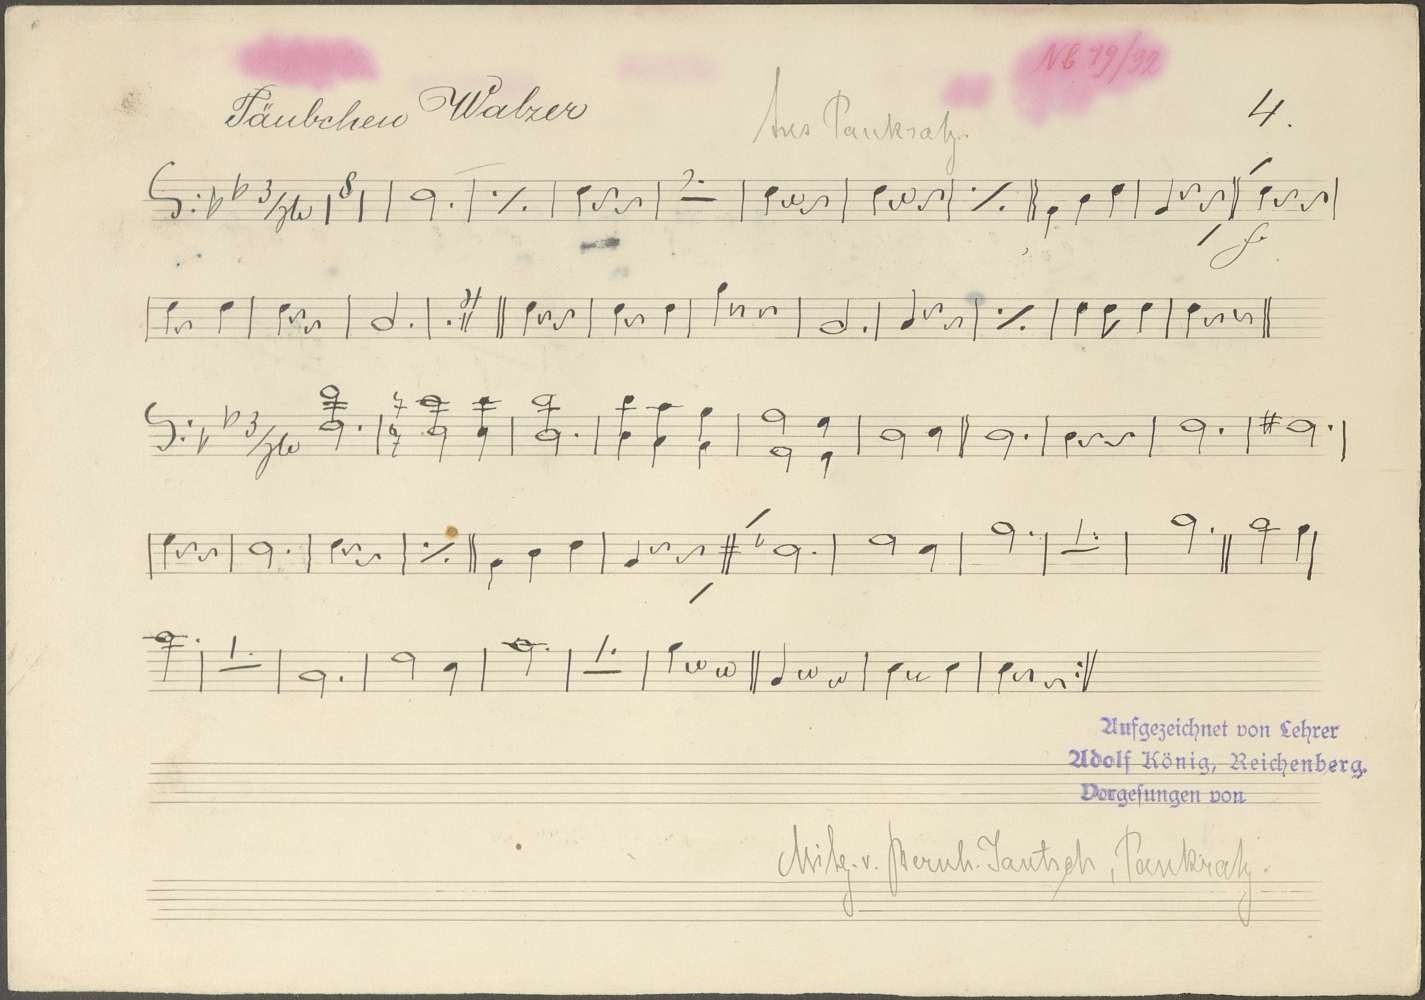 NB 19/32
Täubchen Walzer
Aus Pankratz.
4.
8
Aufgezeichnet von Lehrer
Adolf König, Reichenberg.
Vorgesungen von
v. Bernh. Jantsch, Pankratz.